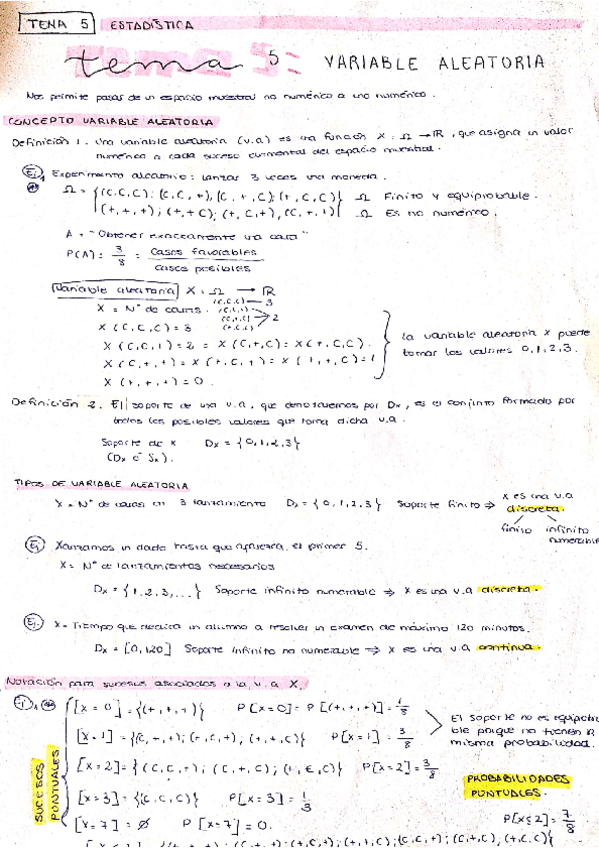 TEMA 5 ESTADÍSTICA
tema 5: VARIABLE ALEATORIA
Nos permite pasar de un espacio muestral no numérico a uno numérico.
CONCEPTO VARIABLE ALEATORIA
Definición 1. Una variable aleatoria (v.a) es una función X: Ω → ℝ, que asigna un valor
numérico a cada suceso elemental del espacio muestral.
Ej Experimento aleatorio: lanzar 3 veces una moneda.
Ω = {(C,C,C); (C,C,+), (C,+,C); (+,C,C) Ω Finito y equiprobable.
(+,+,+); (+,+,C); (+,C,+), (C,+,+)} Ω Es no numérico.
A = "Obtener exactamente una cara"
P(A): 3/8 = Casos favorables / casos posibles
Variable aleatoria X: Ω → ℝ
X = Nº de caras.
X (C,C,C) = 3
X (C,C,+) = 2 = X (C,+,C) = X (+,C,C).
X (C,+,+) = X (+,C,+) = X (+,+,C) = 1
X (+,+,+) = 0.
la variable aleatoria X puede
tomar los valores 0,1,2,3.
Definición 2. El soporte de una v.a, que denotaremos por Dx, es el conjunto formado por
todos los posibles valores que toma dicha v.a.
Soporte de X Dx = {0,1,2,3}
(Dx o Sx).
TIPOS DE VARIABLE ALEATORIA
X = Nº de caras en 3 lanzamiento Dx = {0,1,2,3} Soporte finito ⇒ X es una v.a
discreta.
finito infinito
numerable
Ej Lanzamos un dado hasta que aparezca el primer 5.
X = Nº de lanzamientos necesarios
Dx = {1,2,3,...} Soporte infinito numerable ⇒ X es una v.a discreta.
Ej. X = Tiempo que dedica un alumno a resolver un examen de máximo 120 minutos.
Dx = [0,120] Soporte infinito no numerable ⇒ X es una v.a continua.
Notación para sucesos asociados a la v.a X.
Ej. [X = 0] = {(+,+,+)} P[X=0] = P[(+,+,+)] = 1/8
[X = 1] = {(C,+,+); (+,C,+); (+,+,C)} P[X=1] = 3/8
El soporte no es equiproba
ble porque no tienen la
misma probabilidad.
[X = 2] = {(C,C,+); (C,+,C); (+,C,C)} P[X=2] = 3/8
SUCESOS PUNTUALES
PROBABILIDADES
PUNTUALES.
[X = 3] = {(C,C,C)} P[X=3] = 1/8
[X = 7] = ∅ P[X=7] = 0.
P[X≤2] = 7/8